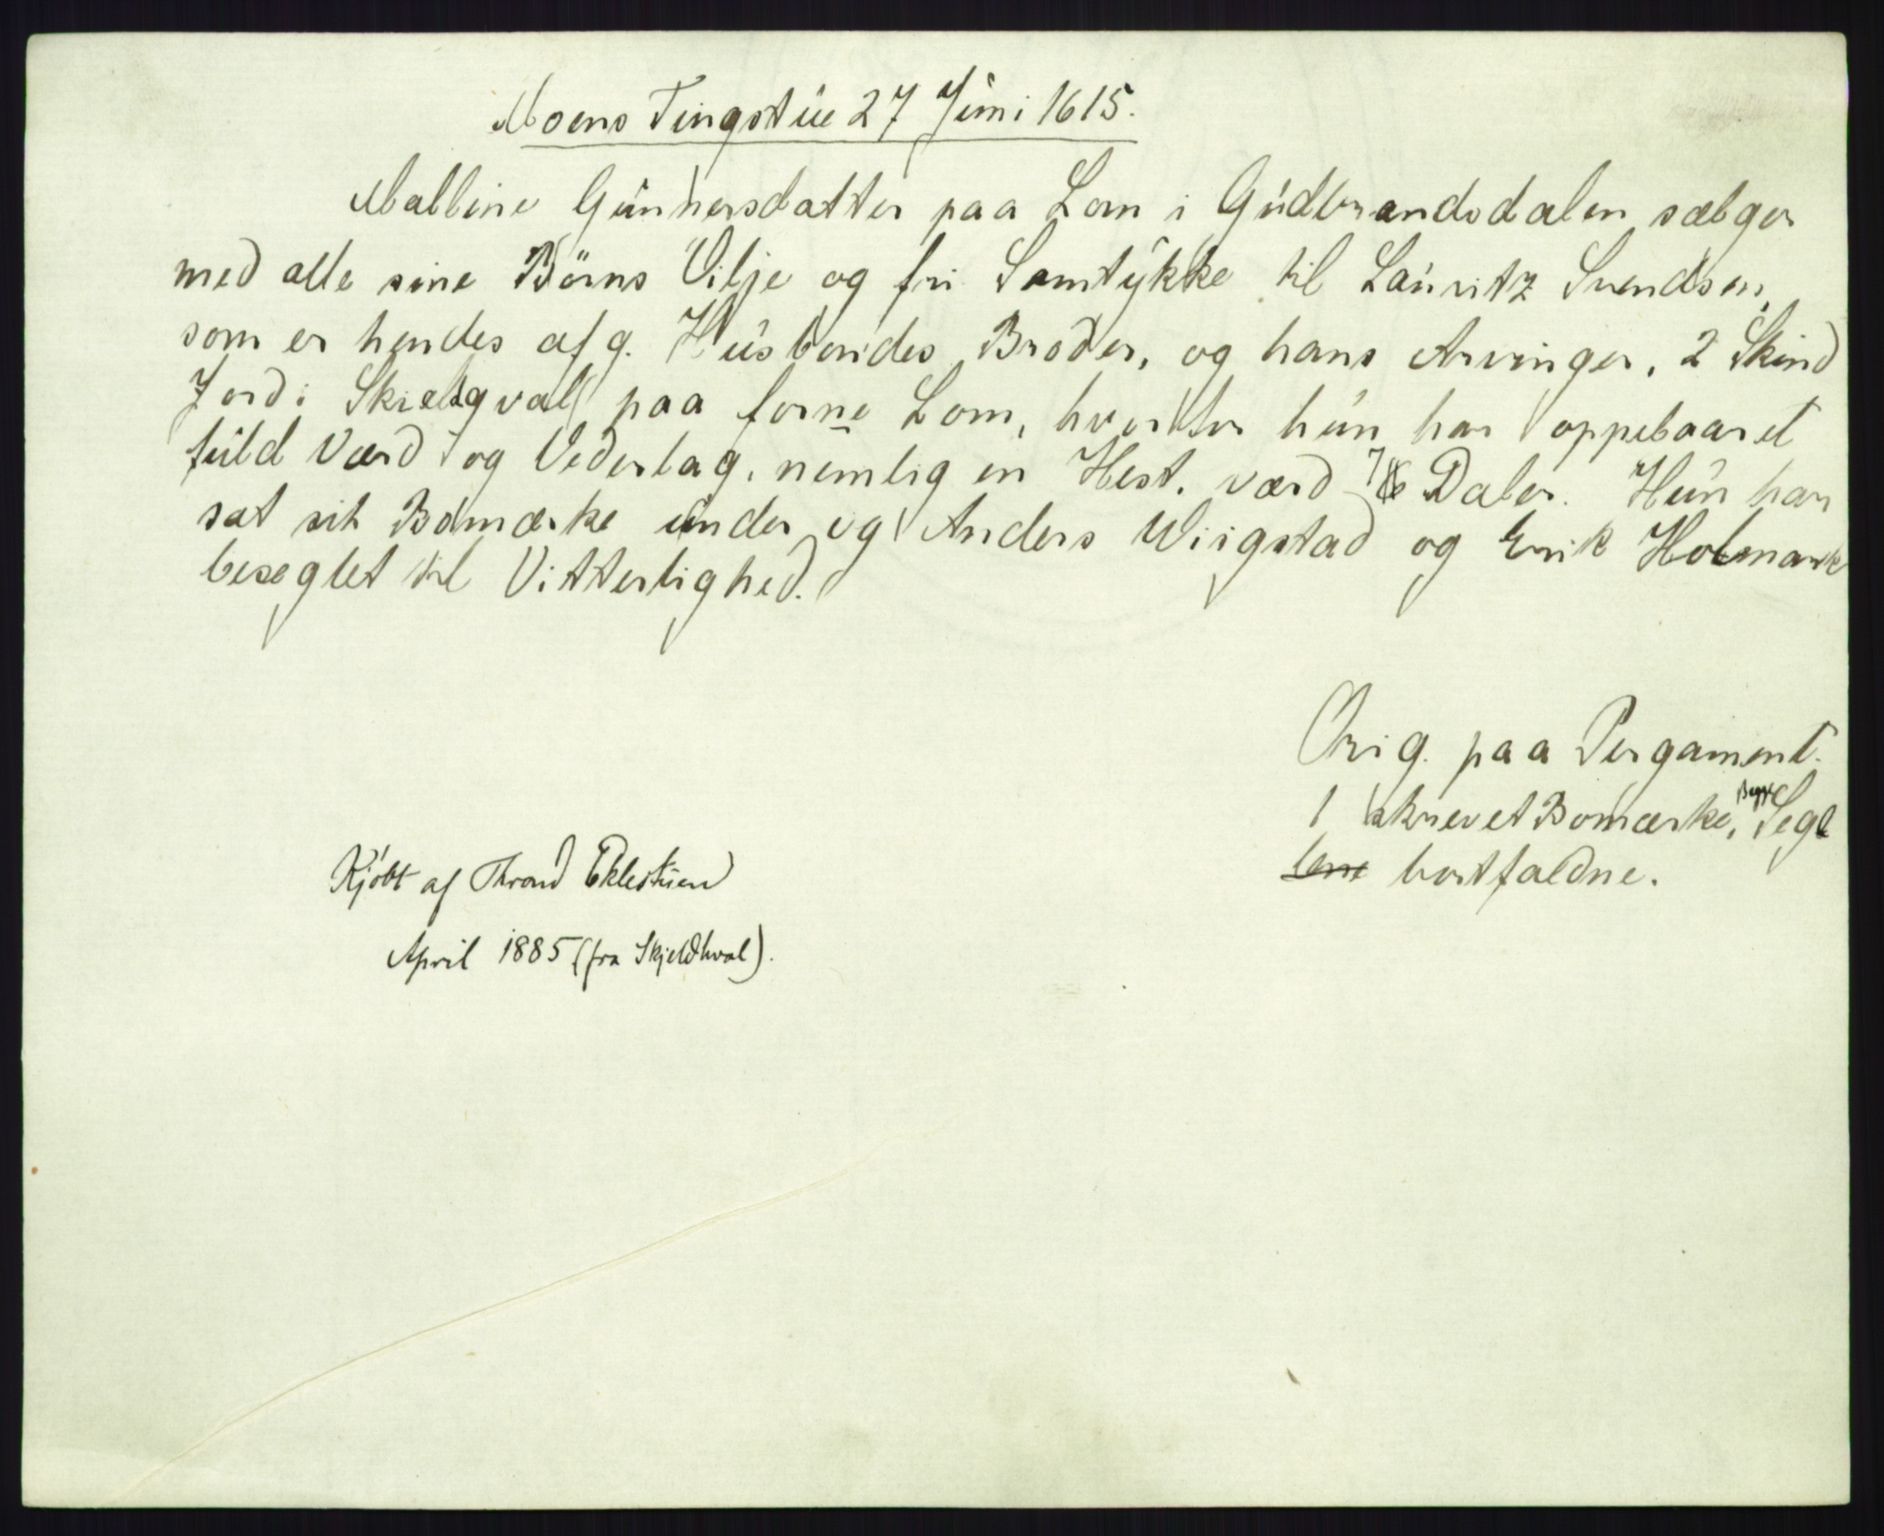 Moens Tingstue 27 Juni 1615.
Malline Gunnersdatter paa Lom i Gudbrandsdalen sælger
med alle sine Börns Vilje og fri Samtykke til Lauritz Svendsen,
som er hendes afg. Husbondes Broder, og hans Arvinger, 2 Skind
Jord i Skielqval paa forne Lom, hvorfor hun har oppebaaret
fuld Værd og Vederlag, nemlig en Hest, værd 7 Daler. Hun har
sat sit Bomærke under og Anders Wiigstad og Erik Holmark
beseglet til Vitterlighed.
Orig. paa Pergament.
1 skrevet Bomærke, Begge Segl
bortfaldne.
Kjöbt af Thrond Eklestuen
April 1885 (fra Skjeldhval).